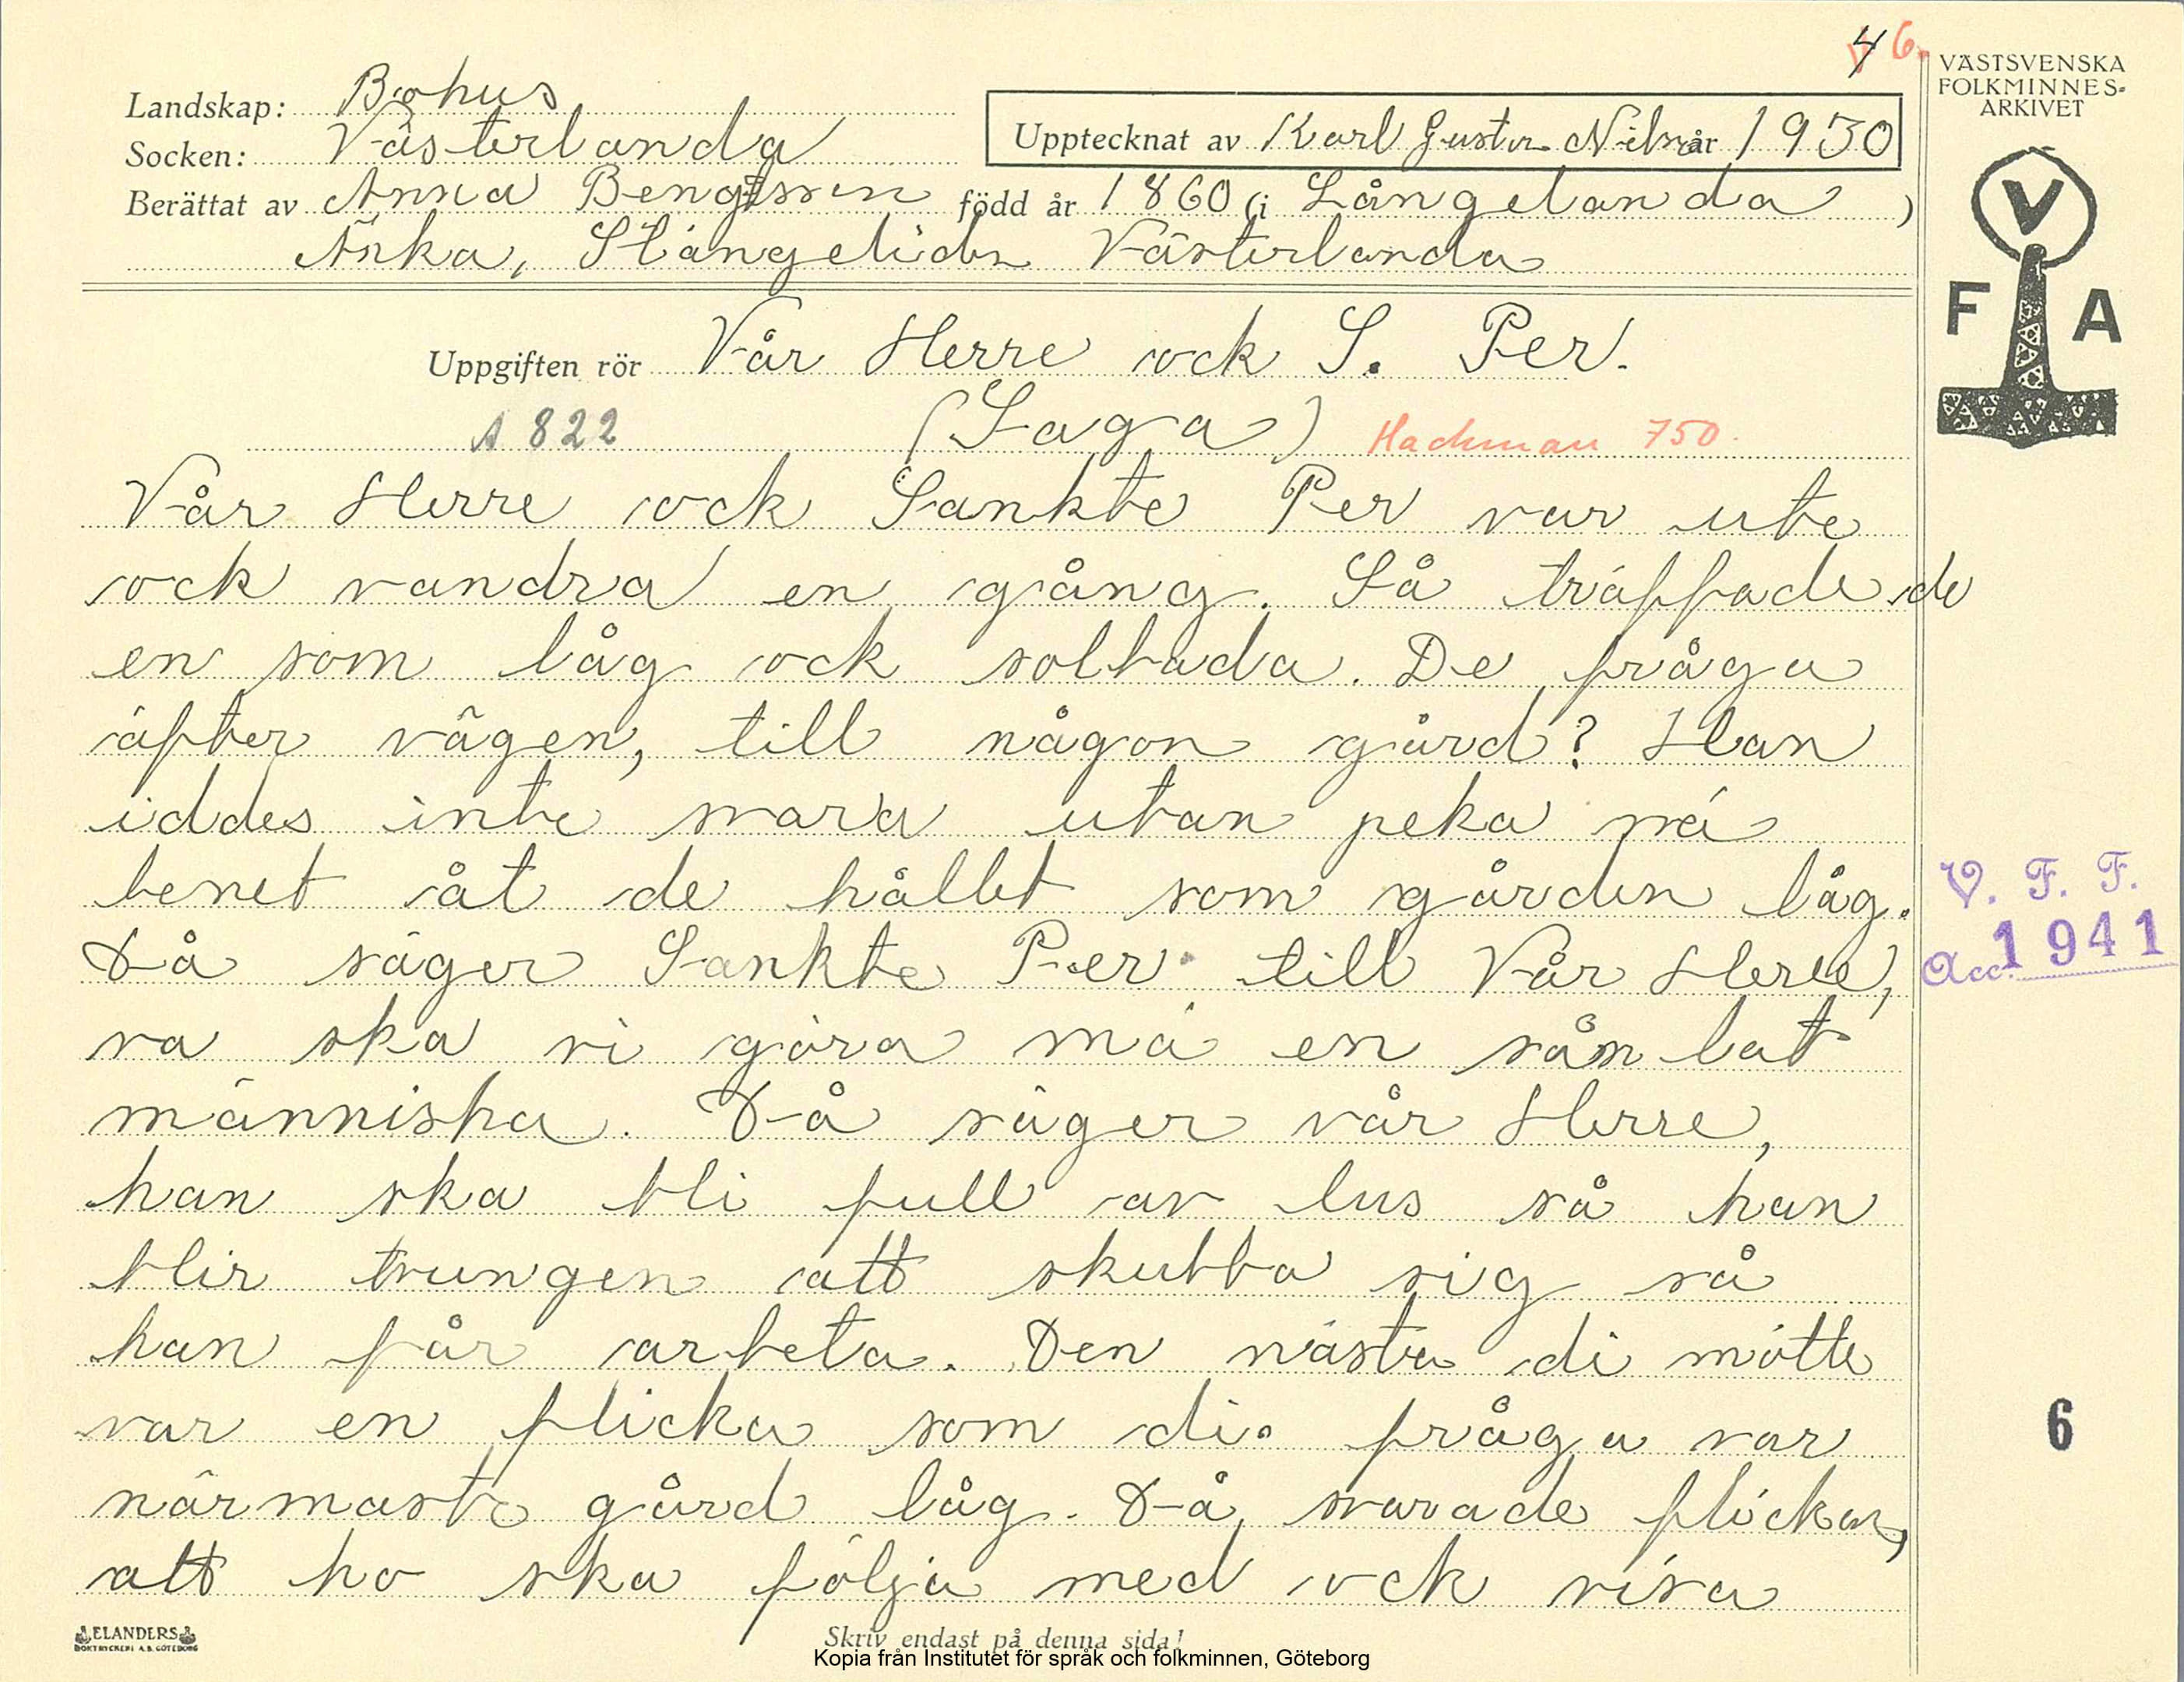 4 6.
VÄSTSVENSKA
FOLKMINNES-
ARKIVET
Landskap: Bohus
Socken: Västerlanda
Upptecknat av Karl Gustov Nilsson år 1930
Berättat av Anna Bengtsson född år 1860 (i Långelanda)
Änka, Stängeliden Västerlanda
V
F A
Uppgiften rör Vår Herre ock S. Per.
A 822 (Saga) Hackman 750.
Vår Herre ock Sankte Per var ute
ock vandra en gång. Så träffade de
en som låg ock solbada. De fråga
äfter vägen, till någon gård? Han
iddes inte svara utan peka må
benet åt de hållet som gården låg.
Då säger Sankte Per till Vår Herre,
va ska vi göra mä en sån lat
människa. Då säger vår Herre,
han ska bli full av lus så han
blir tvungen att skubba sig så
han får arbeta. Den nästa di mötte
var en flicka som di fråga var
närmaste gård låg. Då, svarade flickan,
att ho ska följa med ock visa
V. F. F.
Acc. 1941
6
ELANDERS
BOKTRYCKERI A.B. GÖTEBORG
Skriv endast på denna sida!
Kopia från Institutet för språk och folkminnen, Göteborg